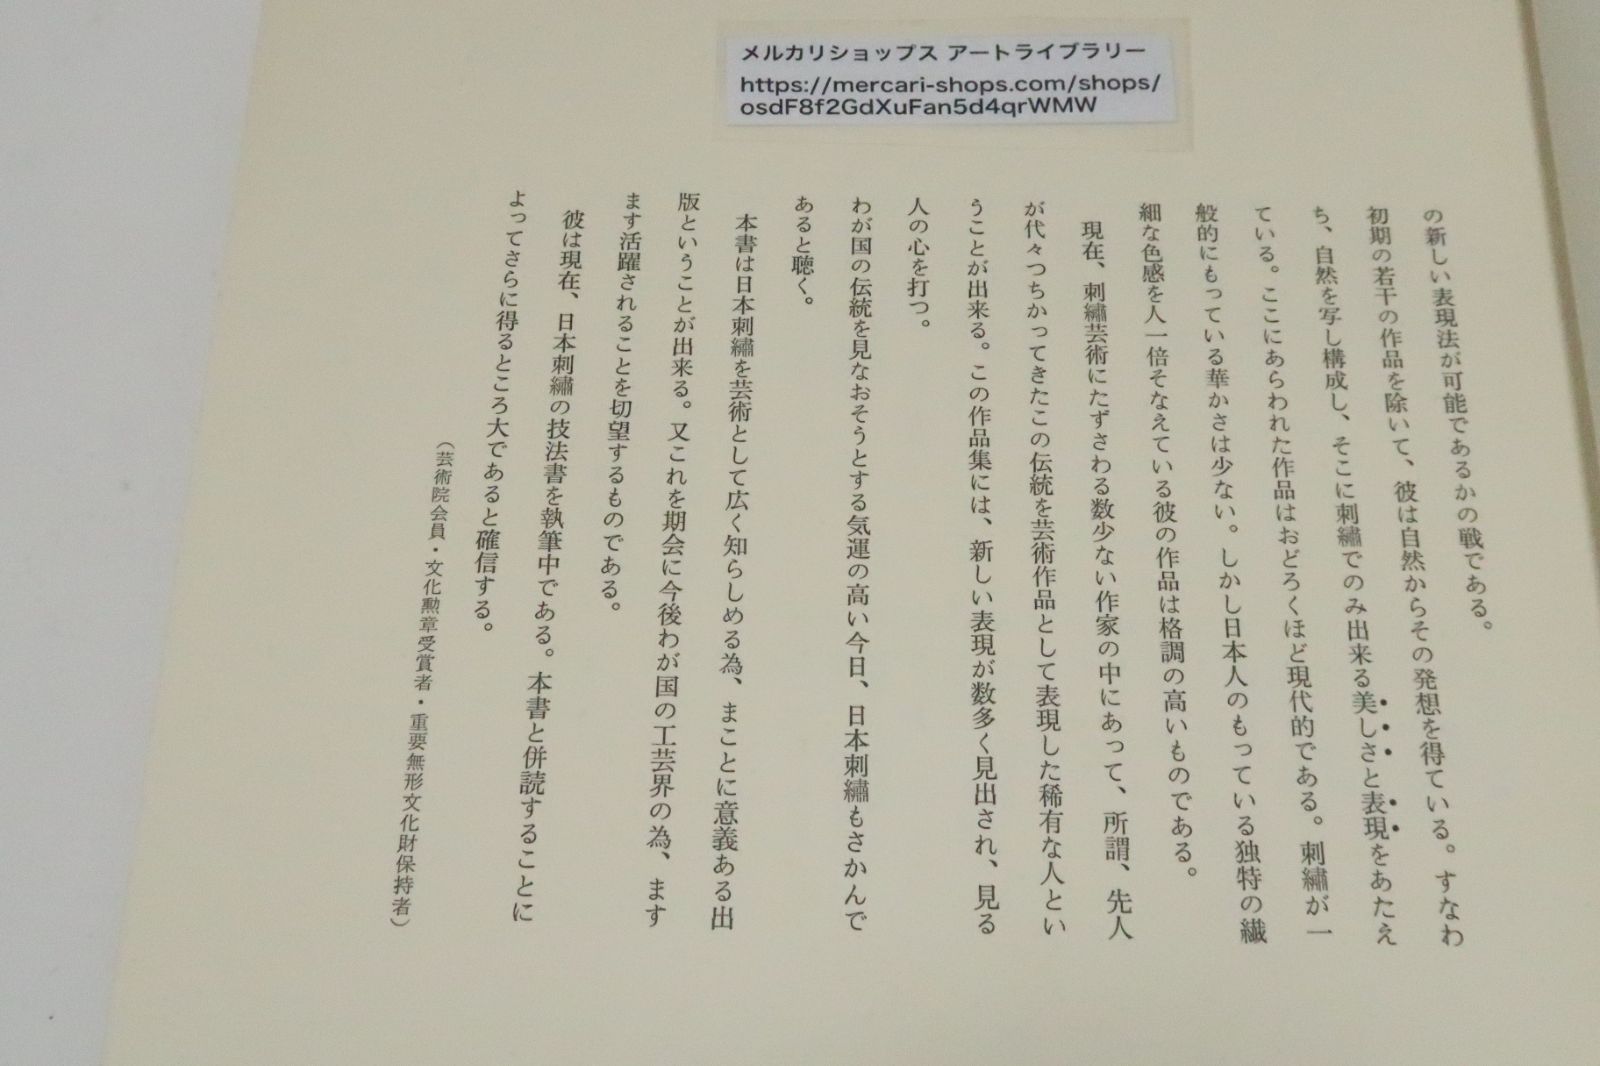 メルカリショップス アートライブラリー
https://mercari-shops.com/shops/
osdF8f2GdXuFan5d4qrWMW
の新しい表現法が可能であるかの戦である。
初期の若干の作品を除いて、彼は自然からその発想を得ている。すなわ
ち、自然を写し構成し、そこに刺繡でのみ出来る美しさと表現をあたえ
ている。ここにあらわれた作品はおどろくほど現代的である。刺繡が一
般的にもっている華かさは少ない。しかし日本人のもっている独特の繊
細な色感を人一倍そなえている彼の作品は格調の高いものである。
現在、刺繡芸術にたずさわる数少ない作家の中にあって、所謂、先人
が代々つちかってきたこの伝統を芸術作品として表現した稀有な人とい
うことが出来る。この作品集には、新しい表現が数多く見出され、見る
人の心を打つ。
わが国の伝統を見なおそうとする気運の高い今日、日本刺繡もさかんで
あると聴く。
本書は日本刺繡を芸術として広く知らしめる為、まことに意義ある出
版ということが出来る。又これを期会に今後わが国の工芸界の為、ます
ます活躍されることを切望するものである。
彼は現在、日本刺繡の技法書を執筆中である。本書と併読することに
よってさらに得るところ大であると確信する。
（芸術院会員・文化勲章受賞者・重要無形文化財保持者）